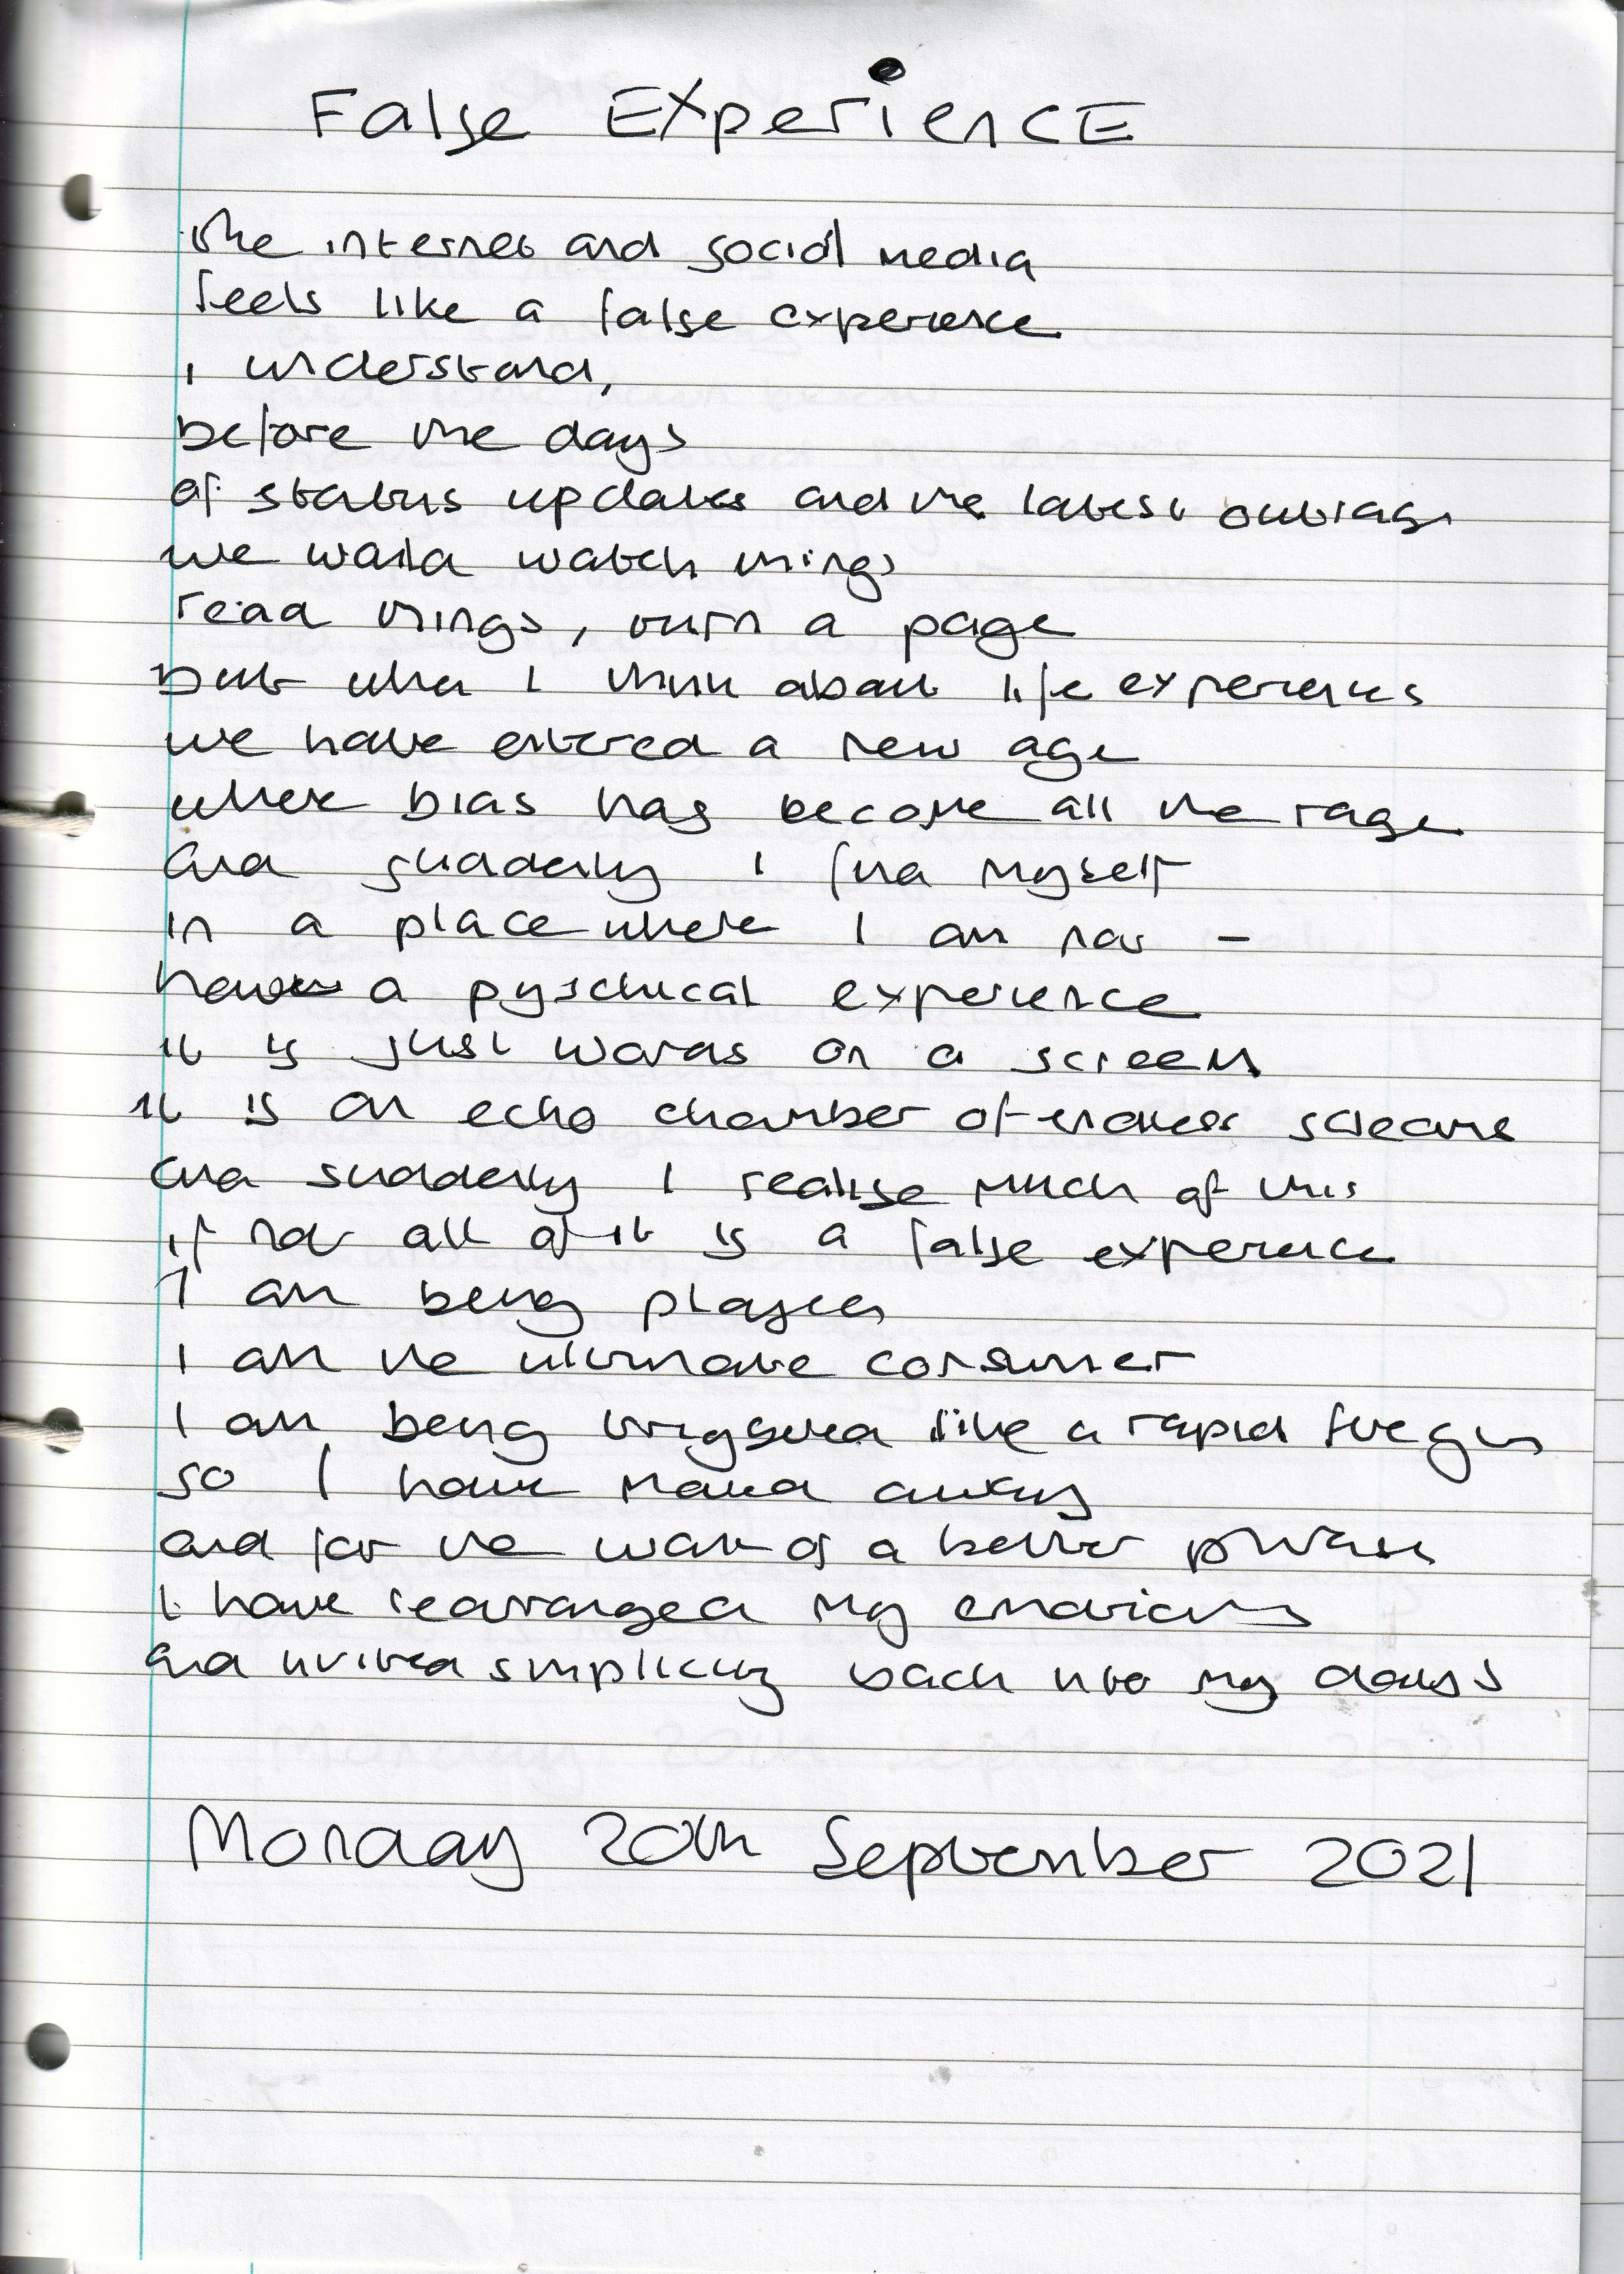 False Experience
the internet and social media
feels like a false experience
I understand,
before the days
of status updates and the latest outrage
we would watch things
read things, turn a page
but when I think about life experiences
we have entered a new age
where bias has become all the rage
and suddenly I find myself
in a place where I am not -
having a pyschical experience
it is just words on a screen
it is an echo chamber of endless screams
and suddenly I realise much of this
if not all of it is a false experience
I am being played
I am the ultimate consumer
I am being triggered like a rapid fire gun
so I have moved away
and for the want of a better phrase
I have rearranged my emotions
and invited simplicity back into my days
Monday 20th September 2021